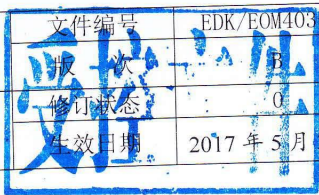 文件编号 EDK/EOM403
版 次 B
修订状态 : 0
生效日期 2017 年 5 月
受控文件